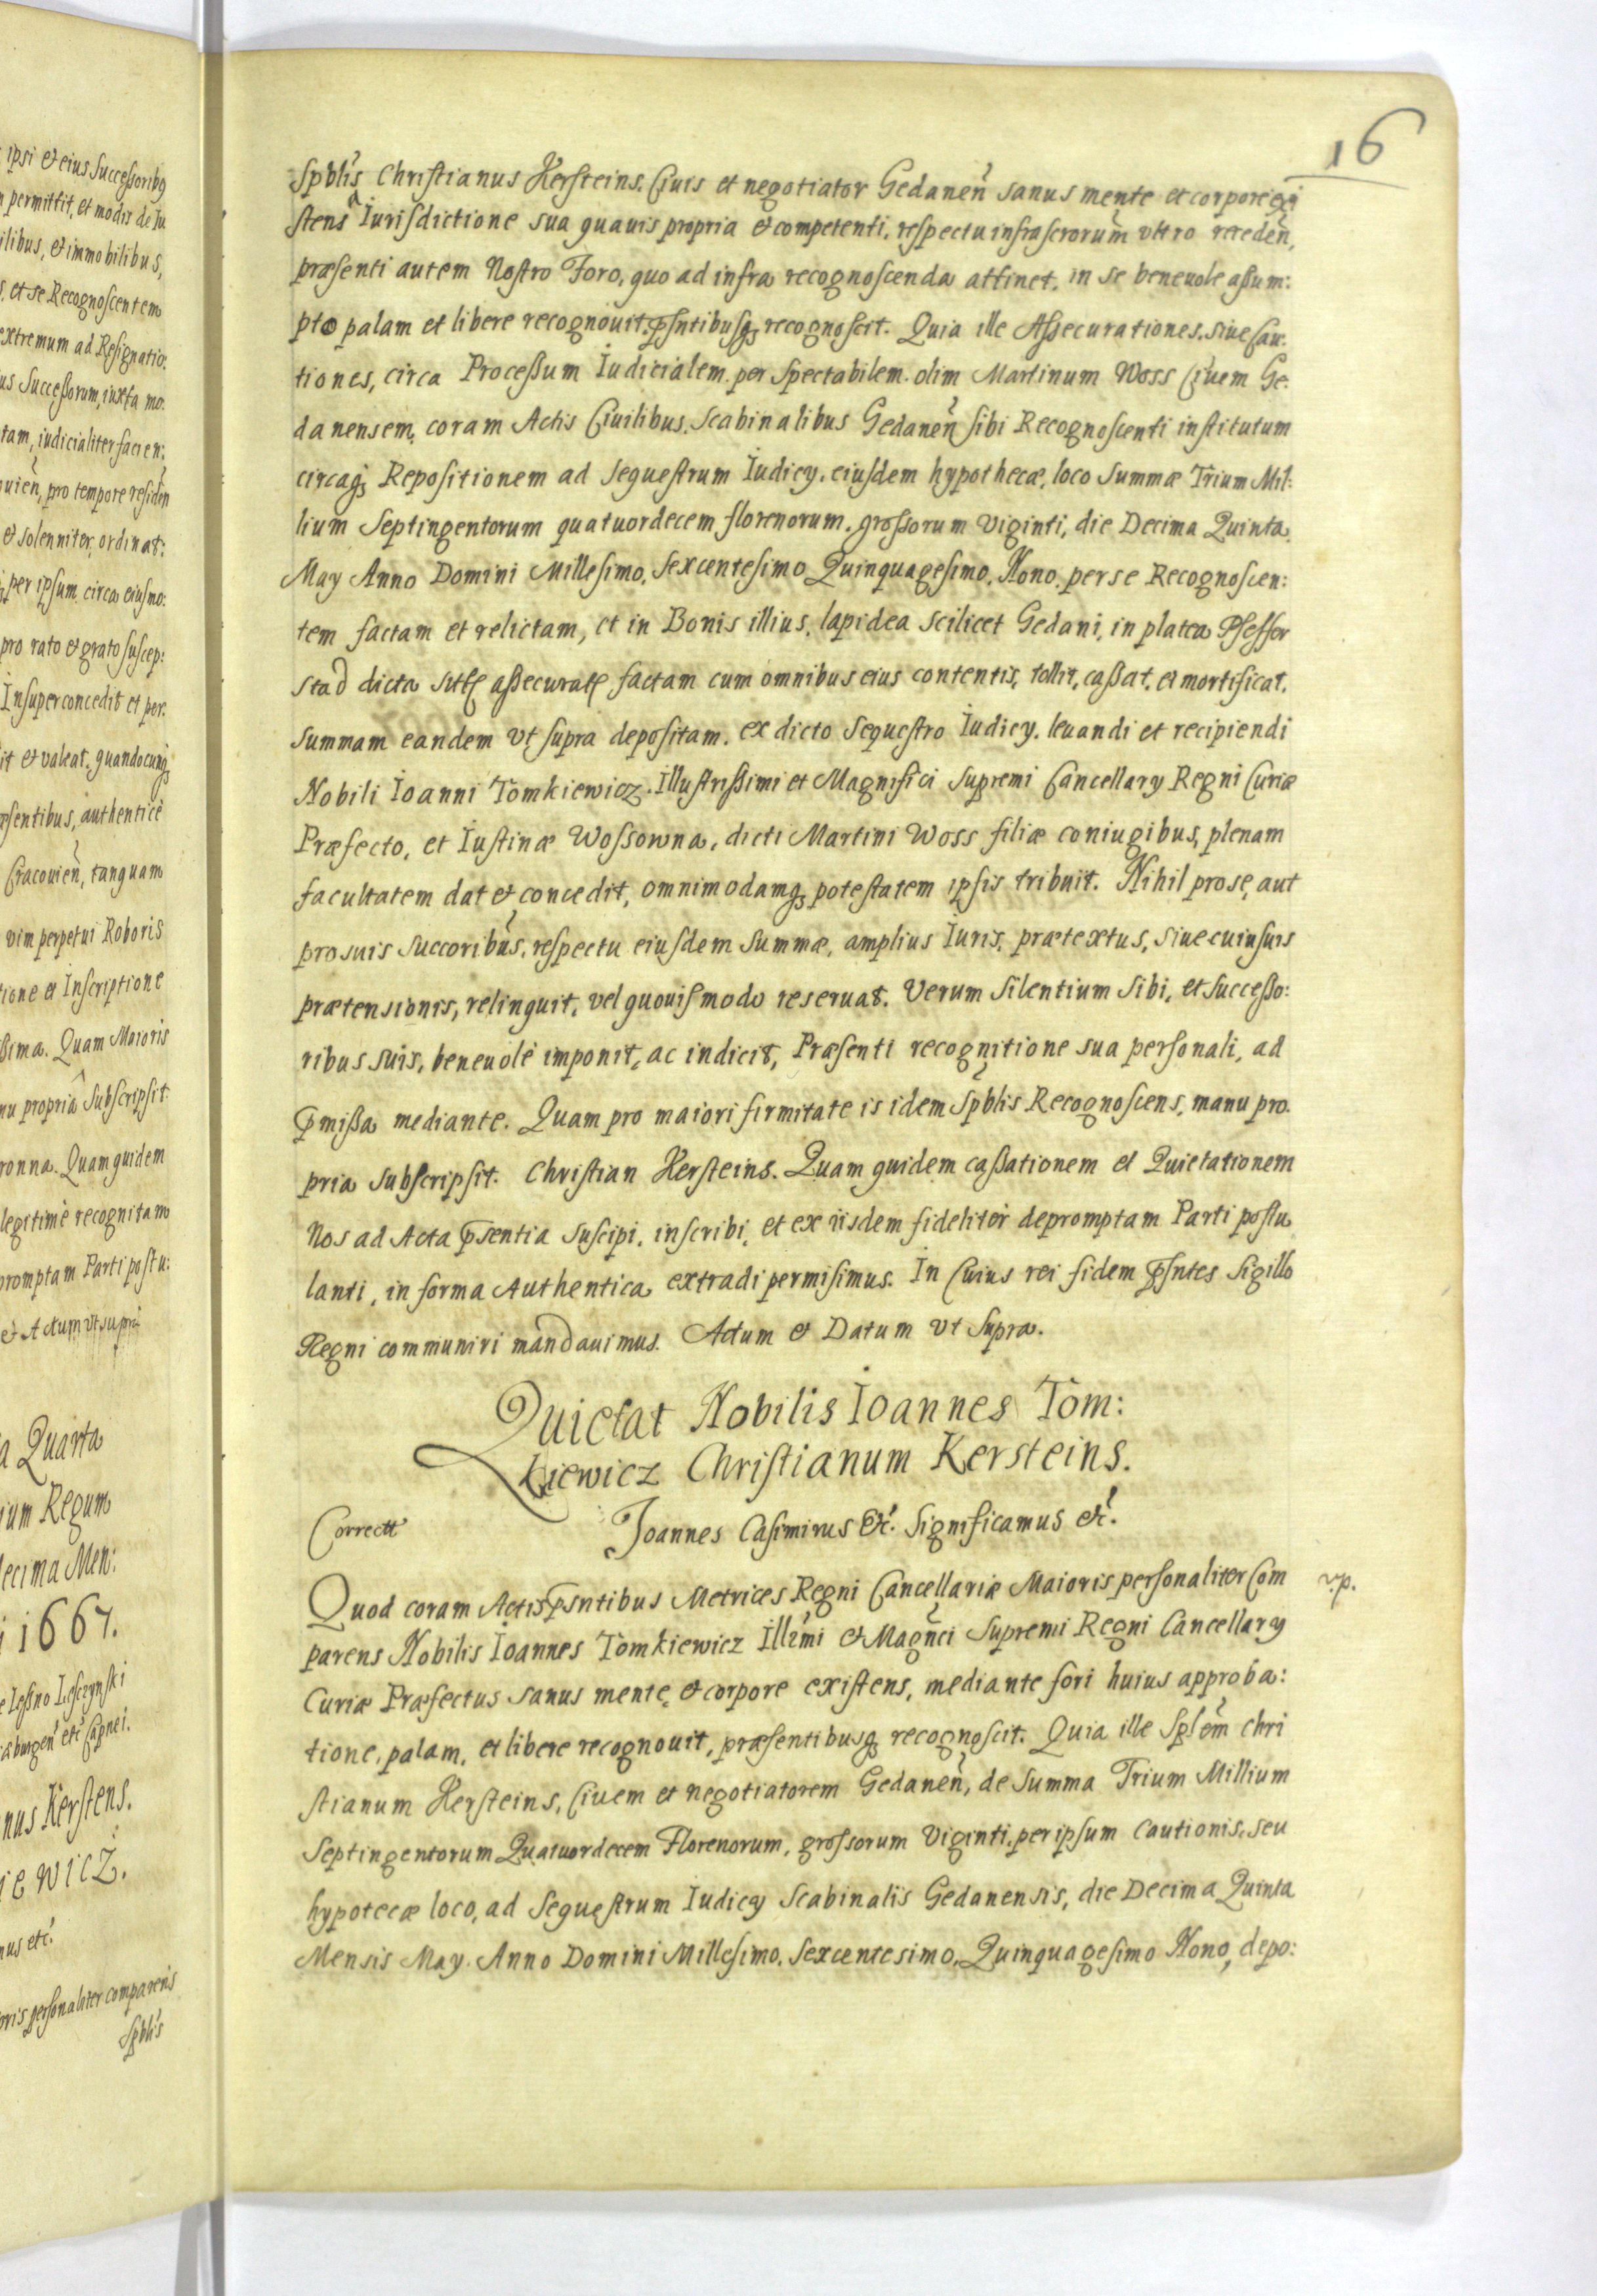 ipsi & eius Successoribq
permittit, et modis de Iu
ilibus, & immobilibus,
et se Recognoscentem
extremum ad Resignatio:
us Successorum, iuxta mo:
tam, iudicialiter facien:
uien, pro tempore residen
& solenniter, ordinat:
per ipsum circa eiusmo:
pro rato & grato suscep:
Insuper concedit et per:
it & valeat, quandocunq
æsentibus, authenticè
Cracouien, tanquam
vim perpetui Roboris
tione et Inscriptione
ssima. Quam Maioris
nu propriâ subscripsit
ronna. Quam quidem
legitimè recognitam
promptam Parti postu:
& Actum vt supra
a Quarta
ium Regum
decima Men:
i 1667.
e Leszno Leszczynski
burgen etc Capnei.
nus Kerstens.
iewicz.
nus etc.
oris personaliter comparens
Spblis
16
Spblis Christianus Kersteins, Ciuis et negotiator Gedanen sanus mente et corpore exi
stens a Iurisdictione sua quauis propria & competenti, respectu infrascrorum vltro receden,
præsenti autem Nostro Foro, quo ad infra recognoscenda attinet, in se beneuole assum:
pto palam et libere recognouit, psntibusq recognoscit. Quia ille Assecurationes, siue Cau:
tiones, circa Processum Iudicialem per Spectabilem olim Martinum Woss Ciuem Ge:
danensem, coram Actis Ciuilibus Scabinalibus Gedanen sibi Recognoscenti institutum
circaq Repositionem ad Sequestrum Iudicy, eiusdem hypothecæ, loco Summæ Trium Mil:
lium Septingentorum quatuordecem florenorum, grossorum viginti, die Decima Quinta
May Anno Domini Millesimo, Sexcentesimo Quinquagesimo, Nono, per se Recognoscen:
tem factam et relictam, et in Bonis illius, lapidea scilicet Gedani, in platea Pfeffer
stad dicta sitis assecuratis factam cum omnibus eius contentis, tollit, cassat, et mortificat,
summam eandem vt supra depositam, ex dicto Sequestro Iudicy, leuandi et recipiendi
Nobili Ioanni Tomkiewicz, Illustrissimi et Magnifici Supremi Cancellary Regni Curiæ
Præfecto, et Iustinæ Wossowna, dicti Martini Woss filiæ coniugibus, plenam
facultatem dat & concedit, omnimodamq potestatem ipsis tribuit. Nihil pro se, aut
pro suis succoribus, respectu eiusdem Summæ, amplius Iuris, prætextus, siue cuiusuis
prætensionis, relinquit, vel quouismodo reseruat. Verum Silentium Sibi, et successo:
ribus suis, beneuolè imponit, ac indicit, Præsenti recognitione sua personali, ad
pmissa mediante. Quam pro maiori firmitate is idem Spblis Recognoscens, manu pro:
pria subscripsit. Christian Kersteins. Quam quidem cassationem et Quietationem
Nos ad Acta psentia suscipi, inscribi, et ex iisdem fideliter depromptam Parti postu
lanti, in forma Authentica extradi permisimus. In Cuius rei fidem psntes Sigillo
Regni communiri mandauimus. Actum & Datum vt Supra.
Quietat Nobilis Ioannes Tom:
kiewicz Christianum Kersteins.
Correctt Joannes Casimirus &c. Significamus &c.
Quod coram Actis psntibus Metrices Regni Cancellariæ Maioris personaliter Com
parens Nobilis Ioannes Tomkiewicz Illmi & Magnci Supremi Regni Cancellary
Curiæ Præfectus sanus mente, & corpore existens, mediante fori huius approba:
tione, palam, et libere recognouit, præsentibusq recognoscit. Quia ille Splem Chri
stianum Kersteins, Ciuem et negotiatorem Gedanen, de Summa Trium Millium
Septingentorum Quatuordecem Florenorum, grossorum Viginti, per ipsum Cautionis, seu
hypotecæ loco, ad Sequestrum Iudicy Scabinalis Gedanensis, die Decima Quinta
Mensis May Anno Domini Millesimo, Sexcentesimo, Quinquagesimo Nono, depo: